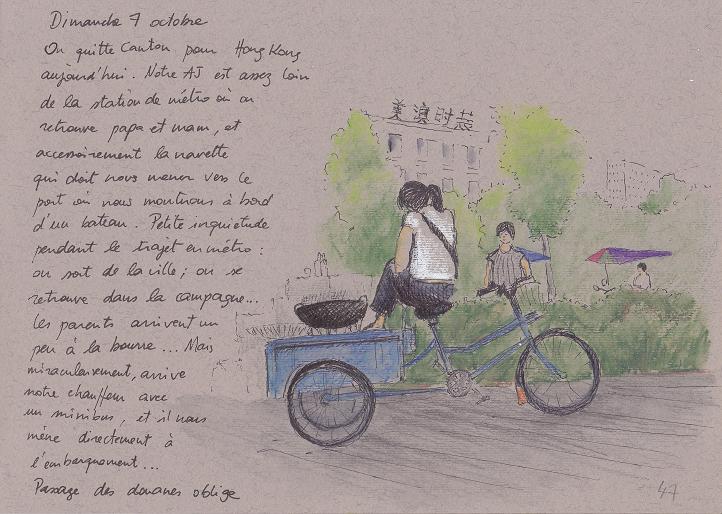 Dimanche 7 octobre
On quitte Canton pour Hong Kong
aujourd'hui. Notre AJ est assez loin
de la station de métro où on
retrouve papa et mam, et
accessoirement la navette
qui doit nous mener vers le
port où nous montrons à bord
d'un bateau. Petite inquiétude
pendant le trajet en métro :
on sort de la ville ; on se
retrouve dans la campagne...
Les parents arrivent un
peu à la bourre... Mais
miraculeusement, arrive
notre chauffeur avec
un minibus, et il nous
mène directement à
l'embarquement...
Passage des douanes oblige
47